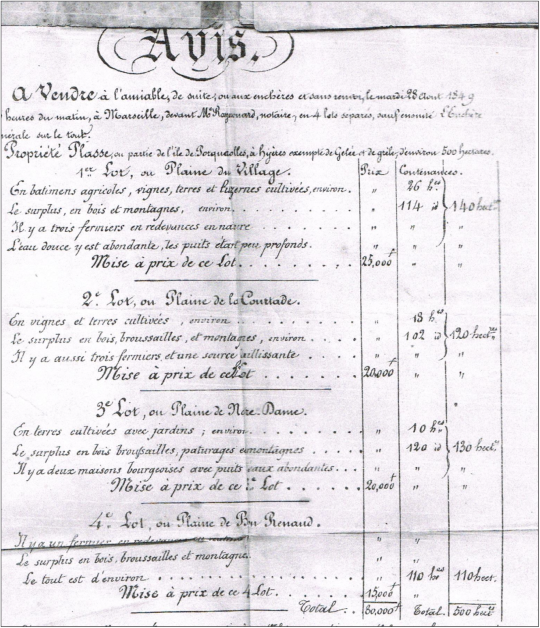 Avis.
A Vendre à l'amiable, de suite, ou aux enchères et sans renvoi, le mardi 28 Aout 1849
heures du matin, à Marseille, devant Me notaire, en 4 lots séparés, sauf ensuite l'Enchère
nérale sur le tout.
Propriété Plasse, ou partie de l'île de Porquerolles, à hyères exempte de Gelée et de grêle, d'environ 500 hectares.
1er Lot, ou Plaine du Village. Prix Contenances.
En batimens agricoles, vignes, terres et luzernes cultivées, environ. " 26 hes
Le surplus, en bois et montagnes, environ " 114 id 140 hect.
Il y a trois fermiers en redevances en nature " " "
L'eau douce y est abondante, les puits étant peu profonds. " " "
Mise à prix de ce Lot 25,000f " "
2e Lot, ou Plaine de la Courtade.
En vignes et terres cultivées, environ " 18 hes
Le surplus en bois, broussailles, et montagnes, environ " 102 id 120 hect.
Il y a aussi trois fermiers, et une source jaillissante " " "
Mise à prix de ce Lot 20,000f " "
3e Lot, ou Plaine de Notre-Dame.
En terres cultivées avec jardins ; environ " 10 hes
Le surplus en bois broussailles, paturages et montagnes " 120 id 130 hect.
Il y a deux maisons bourgeoises avec puits eaux abondantes " " "
Mise à prix de ce Lot 20,000f " "
4e Lot, ou Plaine de Bon Renaud.
Il y a un fermier en redevances " "
Le surplus en bois, broussailles et montagne. " "
Le tout est d'environ " 110 hes 110 hect.
Mise à prix de ce 4 Lot 15,000f " "
Total 80,000f Total. 500 hect